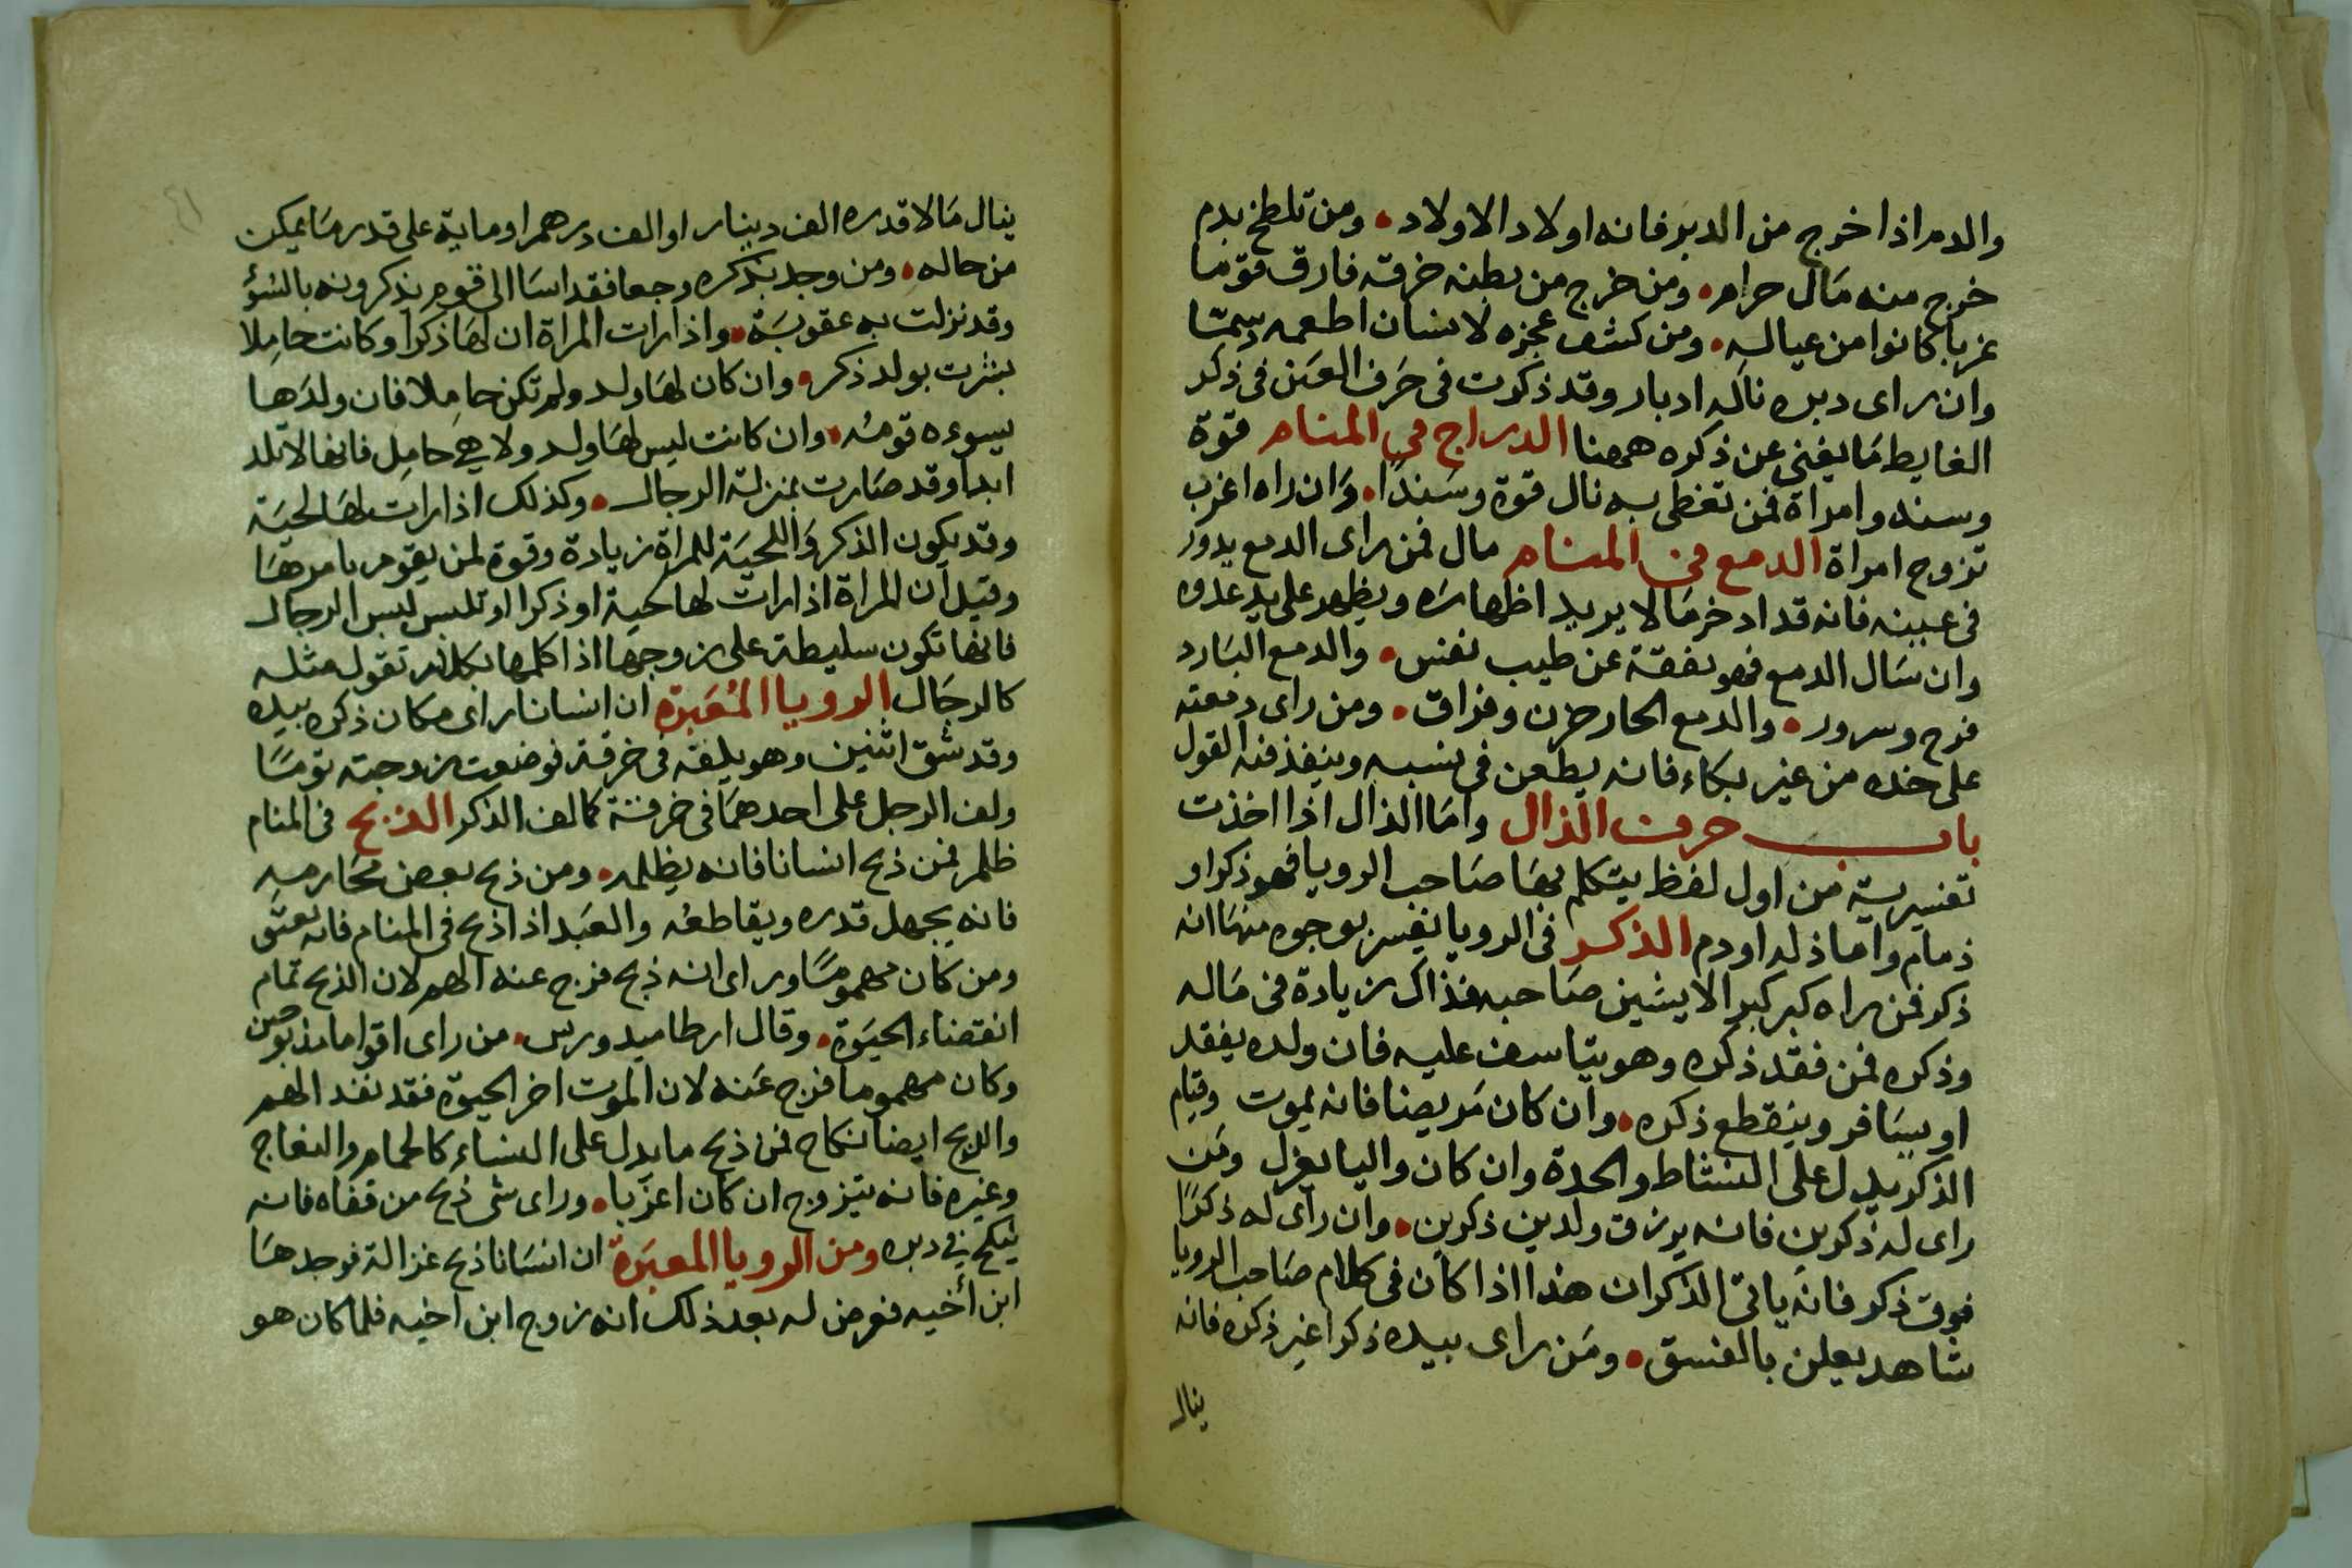 والدم اذا خرج من الدبر فانه اولاد الاولاد • ومن تلطخ بدم
خرج منه مال حرام • ومن خرج من بطنه خرقه فارق قوما
غربا كانوا من عياله • ومن كشف عجزه لانسان اطعمه دسما
وان راى دبره ناله ادبار وقد ذكرت فى حرف الغين فى ذكر
الغايط ما يغنى عن ذكره ههنا الدراج فى المنام قوة
وسند وامراة فمن تغطى به نال قوة وسندا • وان راه اعزب
تزوج امراة الدمع فى المنام مال فمن راى الدمع يدور
فى عينه فانه قد ادخر مالا يريد اظهاره ويظهر على يد عدوه
وان سال الدمع فهو نفقة عن طيب نفس • والدمع البارد
فرح وسرور • والدمع الحار حزن وفراق • ومن راى دمعته
على خده من غير بكاء فانه يطعن فى نسبه وينفذ فيه القول
باب حرف الذال واما الذال اذا اخذت
تفسيرية من اول لفظ يتكلم بها صاحب الرويا فهو ذكر او
ذمام واما ذله او دم الذكر فى الرويا يفسر بوجوه منها انه
ذكر فمن راه كبر كبرا لا يشين صاحبه فذاك زيادة فى ماله
وذكره فمن فقد ذكره وهو يتاسف عليه فان ولده يفقد
او يسافر وينقطع ذكره • وان كان مريضا فانه يموت وقيام
الذكر يدل على النشاط والحدة وان كان واليا يعزل ومن
راى له ذكرين فانه يرزق ولدين ذكرين • وان راى له ذكرًا
فوق ذكر فانه ياتى الذكران هذا اذا كان فى كلام صاحب الرويا
شاهد يعلن بالفسق • ومن راى بيده ذكرا غير ذكره فانه
ينال
ينال مالا قدره الف دينار او الف درهم او ماية على قدر ما يمكن
من حاله • ومن وجد بذكره وجعا فقد اسا الى قوم يذكرونه بالسؤ
وقد نزلت به عقوبة • واذا رات المراة ان لها ذكرا وكانت حاملا
بشرت بولد ذكر • وان كان لها ولد ولم تكن حاملا فان ولدها
يسوءه قومه • وان كانت ليس لها ولد ولا هي حامل فانها لا تلد
ابدا وقد صارت بمنزلة الرجال • وكذلك اذا رات لها لحية
وقد يكون الذكر واللحية للمراة زيادة وقوة لمن يقوم بامرها
وقيل ان المراة اذا رات لها لحية او ذكرا او تلبس لبس الرجال
فانها تكون سليطة على زوجها اذا كلمها بكلام تقول مثله
كالرجال الرويا المعبرة ان انسانا راى مكان ذكره بيده
وقد شق اثنين وهو يلفه فى خرقة فوضعت زوجته توما
ولف الرجل على احدهما فى خرقة كما لف الذكر الذبح فى المنام
ظلم فمن ذبح انسانا فانه يظلمه • ومن ذبح بعض محارمه
فانه يجهل قدره ويقاطعه والعبد اذا ذبح فى المنام فانه يعتق
ومن كان مهموما وراى انه ذبح فرج عنه الهم لان الذبح تمام
انقضاء الحيوة • وقال ارطاميدورس • من راى اقواما مذبوحين
وكان مهموما فرج عنه لان الموت اخر الحيوة فقد نفد الهم
والذبح ايضا نكاح فمن ذبح ما يدل على النساء كالحمام والنعاج
وغيره فانه يتزوج ان كان اعزبا • وراى شى ذبح من قفاه فانه
ينكح فى دبره ومن الرويا المعبرة ان انسانا ذبح غزالة فوجدها
ابن أخيه فعرض له بعد ذلك انه زوج ابن اخيه فلما كان هو